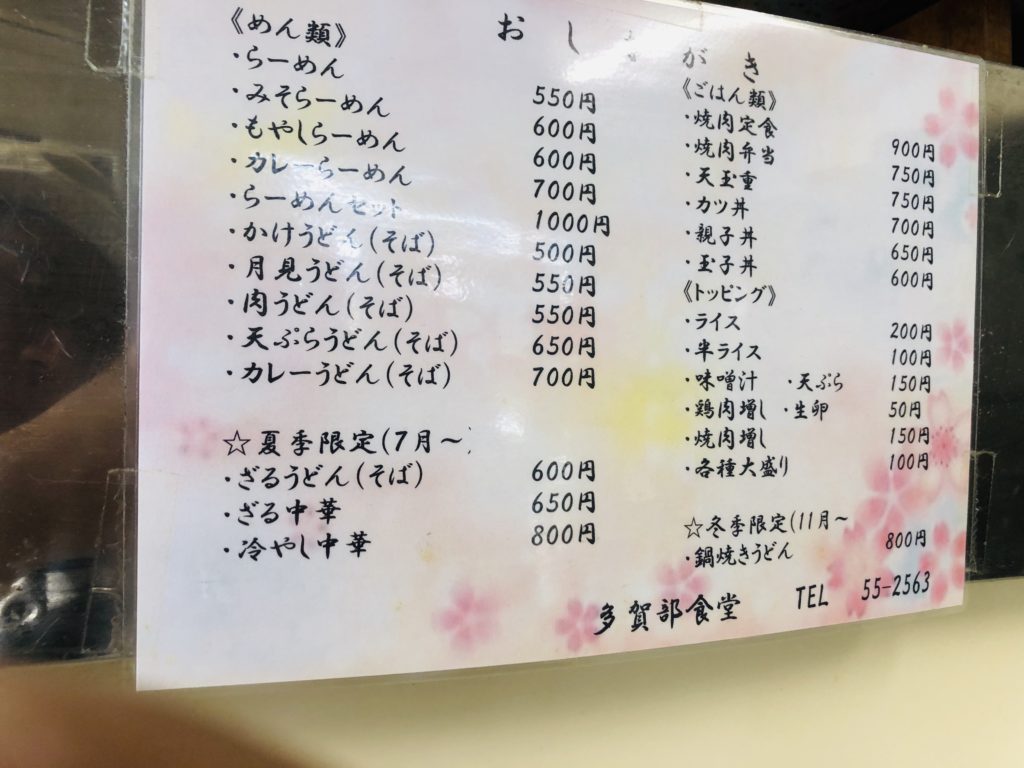 おしながき
《めん類》
・らーめん 550円
・みそらーめん 600円
・もやしらーめん 600円
・カレーらーめん 700円
・らーめんセット 1000円
・かけうどん(そば) 500円
・月見うどん(そば) 550円
・肉うどん(そば) 550円
・天ぷらうどん(そば) 650円
・カレーうどん(そば) 700円
☆夏季限定(7月～
・ざるうどん(そば) 600円
・ざる中華 650円
・冷やし中華 800円
《ごはん類》
・焼肉定食 900円
・焼肉弁当 750円
・天玉重 750円
・カツ丼 700円
・親子丼 650円
・玉子丼 600円
《トッピング》
・ライス 200円
・半ライス 100円
・味噌汁 ・天ぷら 150円
・鶏肉増し ・生卵 50円
・焼肉増し 150円
・各種大盛り 100円
☆冬季限定(11月～
・鍋焼きうどん 800円
多賀部食堂 TEL 55-2563